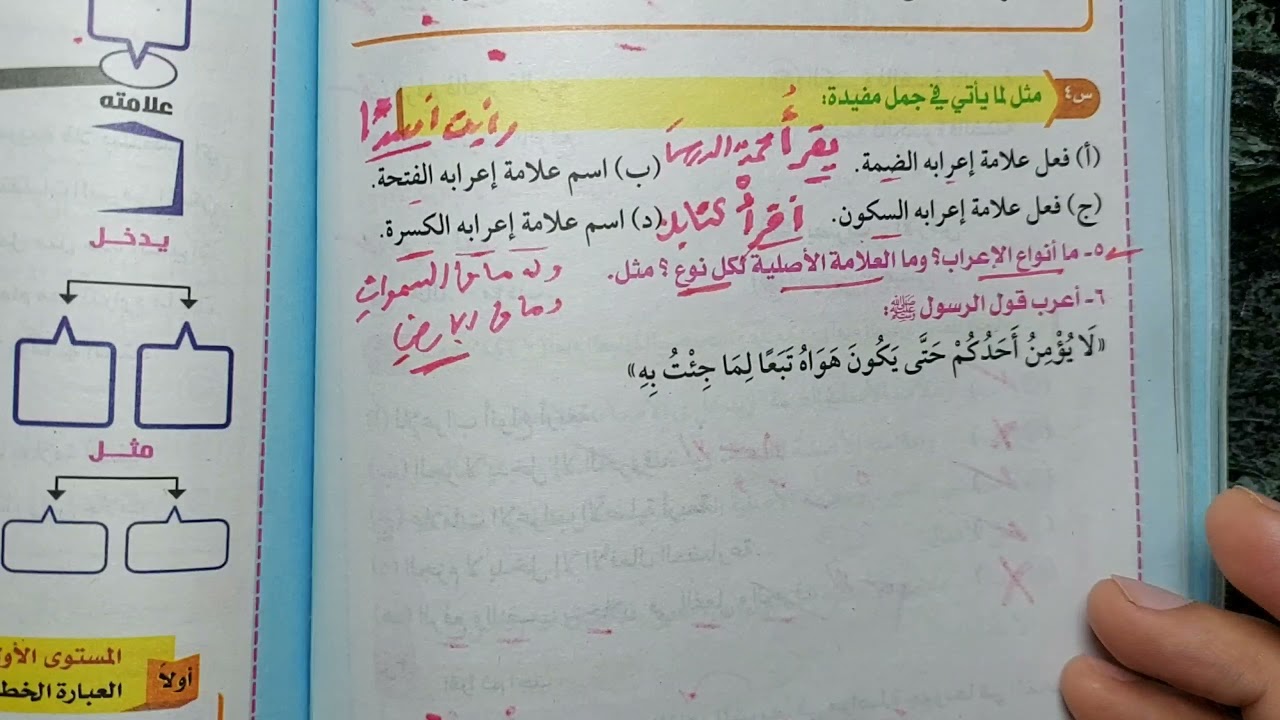 س٤ مثل لما يأتي في جمل مفيدة:
رأيت أسدًا
(أ) فعل علامة إعرابه الضيمة. يقرأُ محمد الدرس (ب) اسم علامة إعرابه الفتحة.
(ج) فعل علامة إعرابه السكون. اقرأْ كتابك (د) اسم علامة إعرابه الكسرة.
٥- ما أنواع الإعراب؟ وما العلامة الأصلية لكل نوع؟ مثل.
وله ما في السموات
وما في الأرض
٦- أعرب قول الرسول ﷺ:
«لَا يُؤْمِنُ أَحَدُكُمْ حَتَّى يَكُونَ هَوَاهُ تَبَعًا لِمَا جِئْتُ بِهِ»
علامته
يدخل
مثل
المستوى الأو
أولاً العبارة الخط